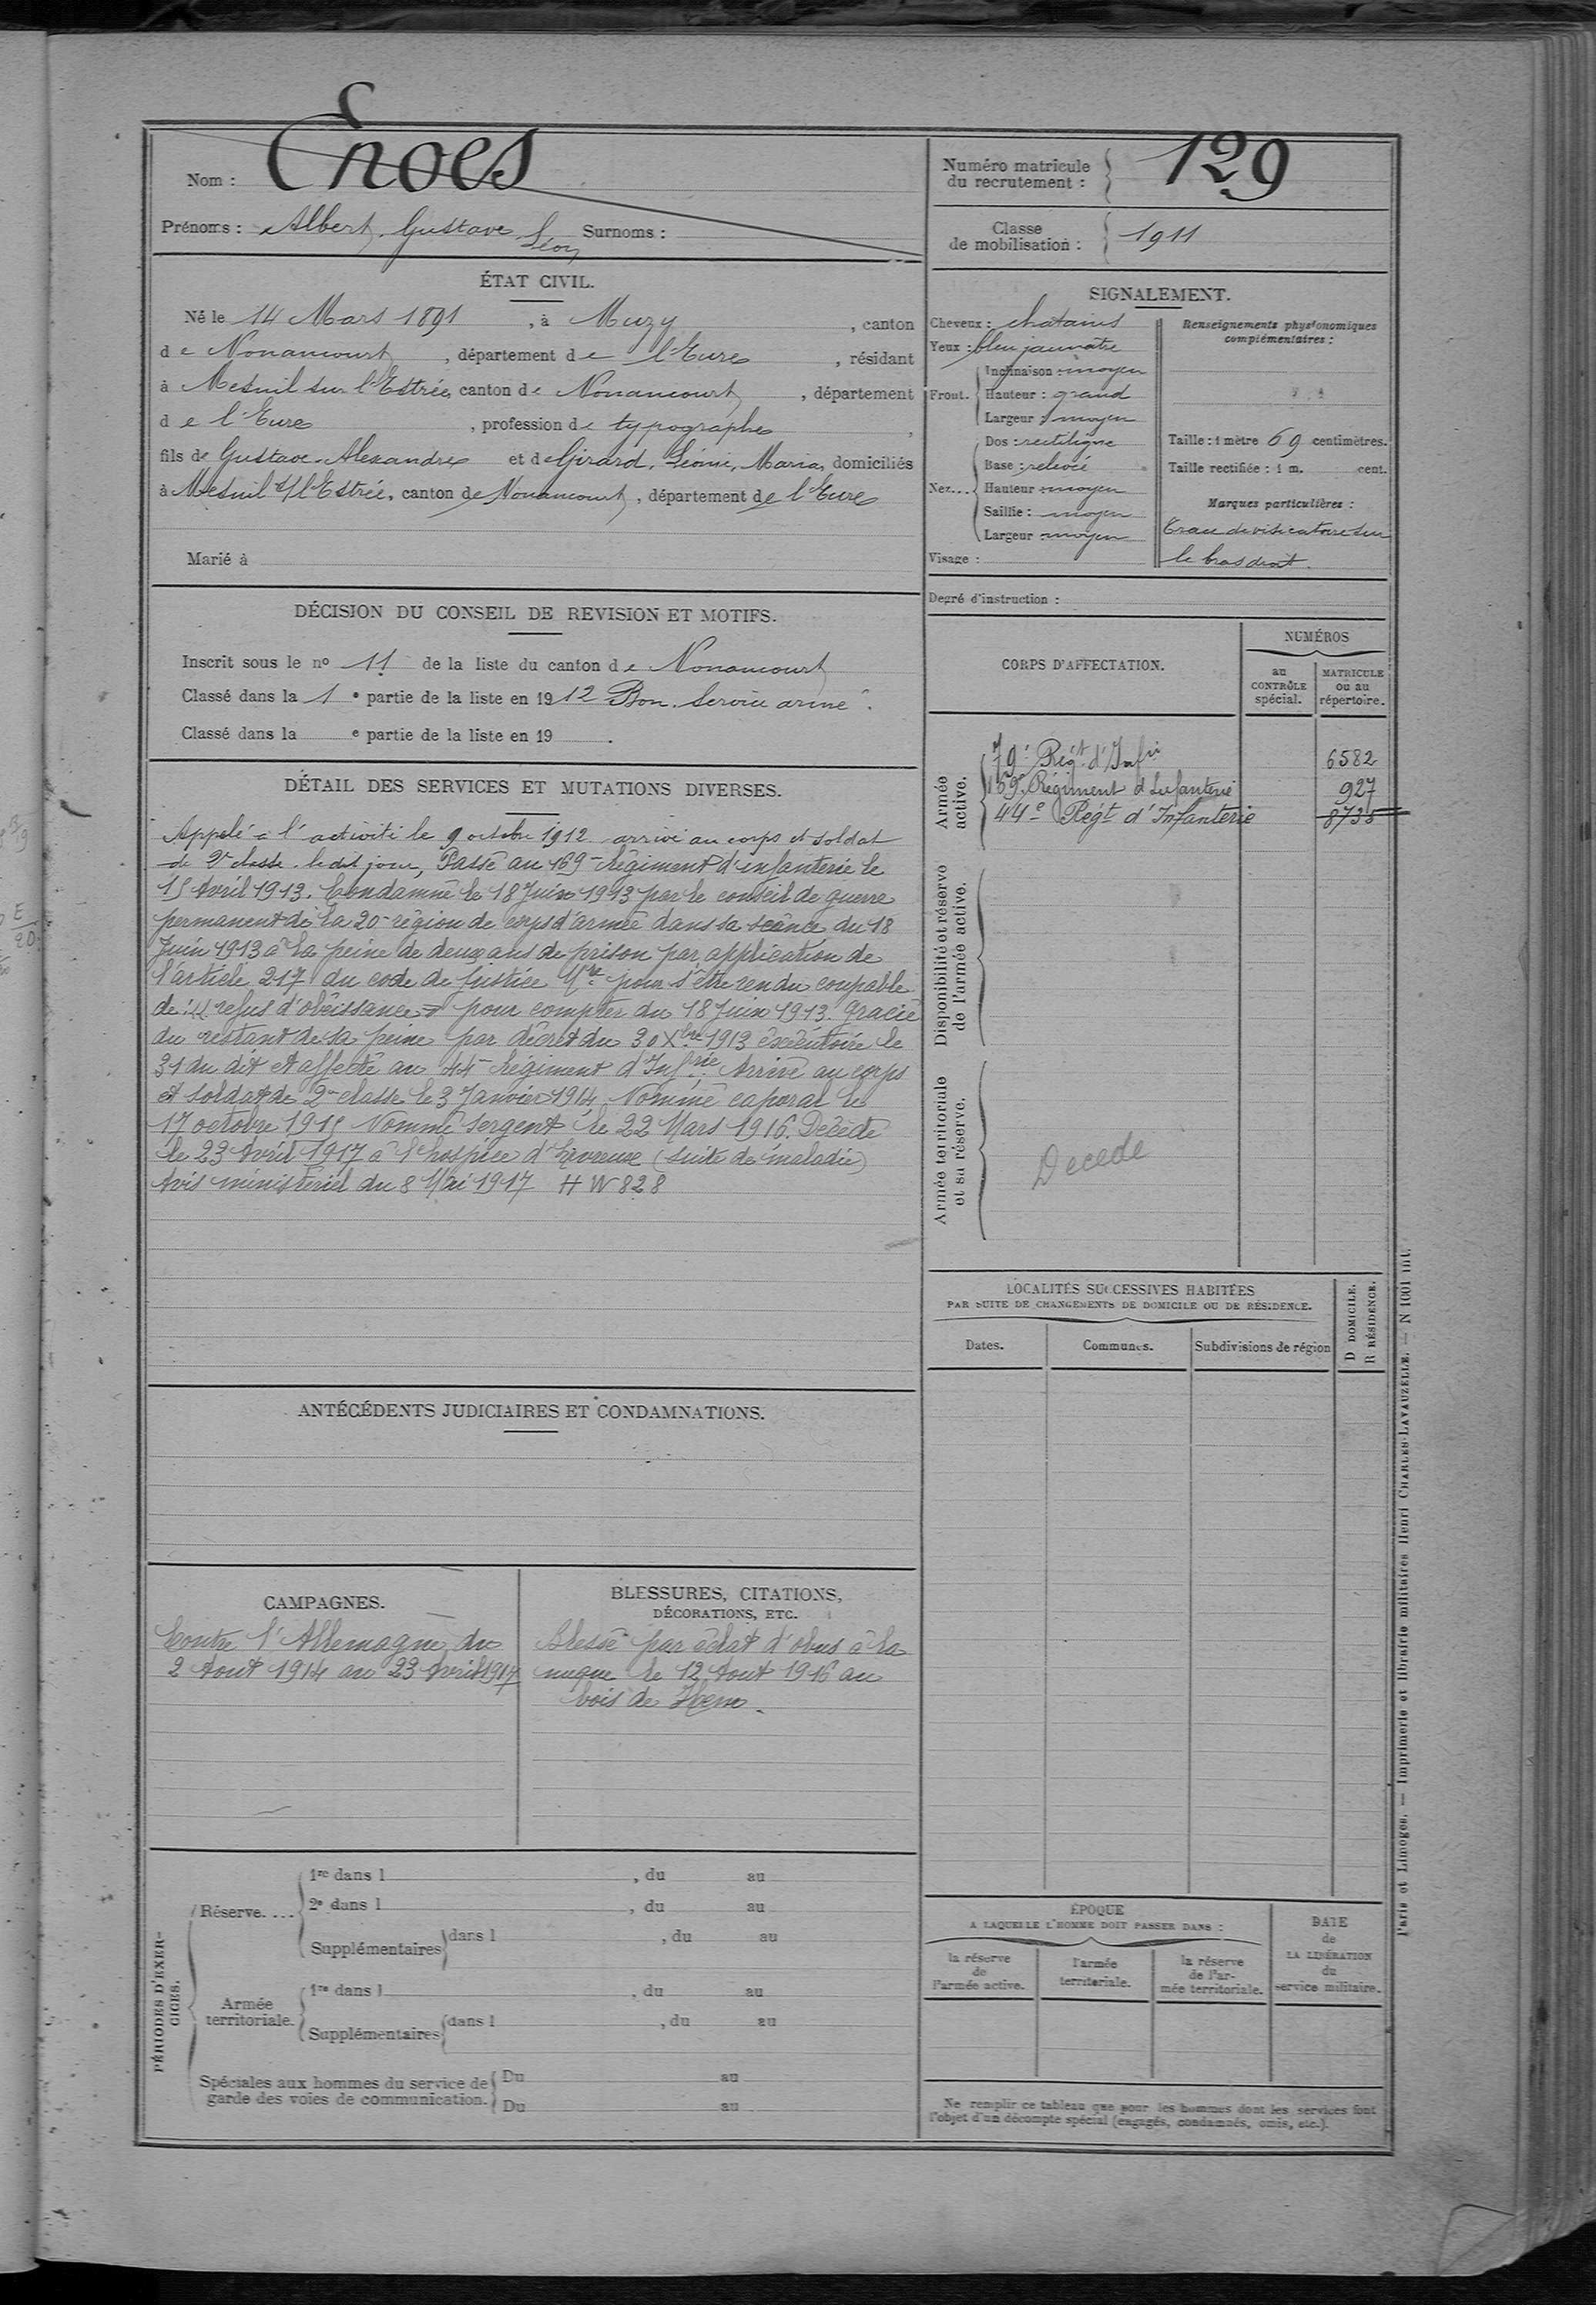 Nom : Enoes
Prénoms : Albert, Gustave, Léon Surnoms :
ÉTAT CIVIL.
Né le 14 Mars 1891, à Muzy, canton
de Nonancourt, département de l'Eure, résidant
à Mesnil sur l'Estrée, canton de Nonancourt, département
de l'Eure, profession de typographe,
fils de Gustave-Alexandre et de Girard, Léonie, Maria, domiciliés
à Mesnil s/ l'Estrée, canton de Nonancourt, département de l'Eure
Marié à
DÉCISION DU CONSEIL DE REVISION ET MOTIFS.
Inscrit sous le no 11 de la liste du canton de Nonancourt
Classé dans la 1e partie de la liste en 1912 Bon. Service armé.
Classé dans la e partie de la liste en 19 .
DÉTAIL DES SERVICES ET MUTATIONS DIVERSES.
Appelé à l'activité le 9 octobre 1912 arrivé au corps et soldat
de 2e classe le dit jour, Passé au 169e Régiment d'infanterie le
15 Avril 1913. Condamné le 18 Juin 1913 par le conseil de guerre
permanent de la 20e région de corps d'armée dans sa séance du 18
Juin 1913 à la peine de deux ans de prison par application de
l'article 217 du code de Justice Mre pour s'être rendu coupable
de: refus d'obéissance pour compter du 18 Juin 1913. Gracié
du restant de sa peine par décret du 30 Xbre 1913 éxécutoire le
31 du dit et affecté au 44e Régiment d'Infrie Arrivé au corps
et soldat de 2e classe le 3 Janvier 1914 Nommé caporal le
17 octobre 1915 Nommé Sergent le 22 Mars 1916. Décédé
le 23 Avril 1917 à l'hospice d'Evreux (suite de maladie)
Avis ministériel du 8 Mai 1917 HW 828
ANTÉCÉDENTS JUDICIAIRES ET CONDAMNATIONS.
CAMPAGNES.
Contre l'Allemagne du
2 Aout 1914 au 23 Avril 1917
BLESSURES, CITATIONS,
DÉCORATIONS, ETC.
Blessé par éclat d'obus à la
nuque le 12 Aout 1916 au
bois de Hem.
PÉRIODES D'EXERCICES.
Réserve....
1re dans l , du au
2e dans l , du au
Supplémentaires dans l , du au
Armée territoriale.
1re dans l , du au
Supplémentaires dans l , du au
Spéciales aux hommes du service de
garde des voies de communication.
Du au
Du au
Numéro matricule
du recrutement : 129
Classe
de mobilisation : 1911
SIGNALEMENT.
Cheveux : chatains
Yeux : bleu jaunâtre
Front.
Inclinaison : moyen
Hauteur : grand
Largeur : moyen
Nez...
Dos : rectiligne
Base : relevée
Hauteur : moyen
Saillie : moyen
Largeur : moyen
Visage :
Renseignements physionomiques
complémentaires :
Taille : 1 mètre 69 centimètres.
Taille rectifiée : 1 m. cent.
Marques particulières :
Trace de vésicatoire sur
le bras droit.
Degré d'instruction :
CORPS D'AFFECTATION.
NUMÉROS
au
CONTRÔLE
spécial.
MATRICULE
ou au
répertoire.
Armée
active.
79e Régt d'Infie 6582
169e Régiment d'Infanterie 927
44e Régt d'Infanterie 8735
Disponibilité et réserve
de l'armée active.
Armée territoriale
et sa réserve.
Decede
LOCALITÉS SUCCESSIVES HABITÉES
PAR SUITE DE CHANGEMENTS DE DOMICILE OU DE RÉSIDENCE.
Dates.
Communes.
Subdivisions de région
D DOMICILE.
R RÉSIDENCE.
ÉPOQUE
A LAQUELLE L'HOMME DOIT PASSER DANS :
la réserve
de
l'armée active.
l'armée
territoriale.
la réserve
de l'ar-
mée territoriale.
DATE
de
LA LIBÉRATION
du
service militaire.
Ne remplir ce tableau que pour les hommes dont les services font
l'objet d'un décompte spécial (engagés, condamnés, omis, etc.).
Paris et Limoges. — Imprimerie et librairie militaires Henri CHARLES-LAVAUZELLE. — N 1001 int.